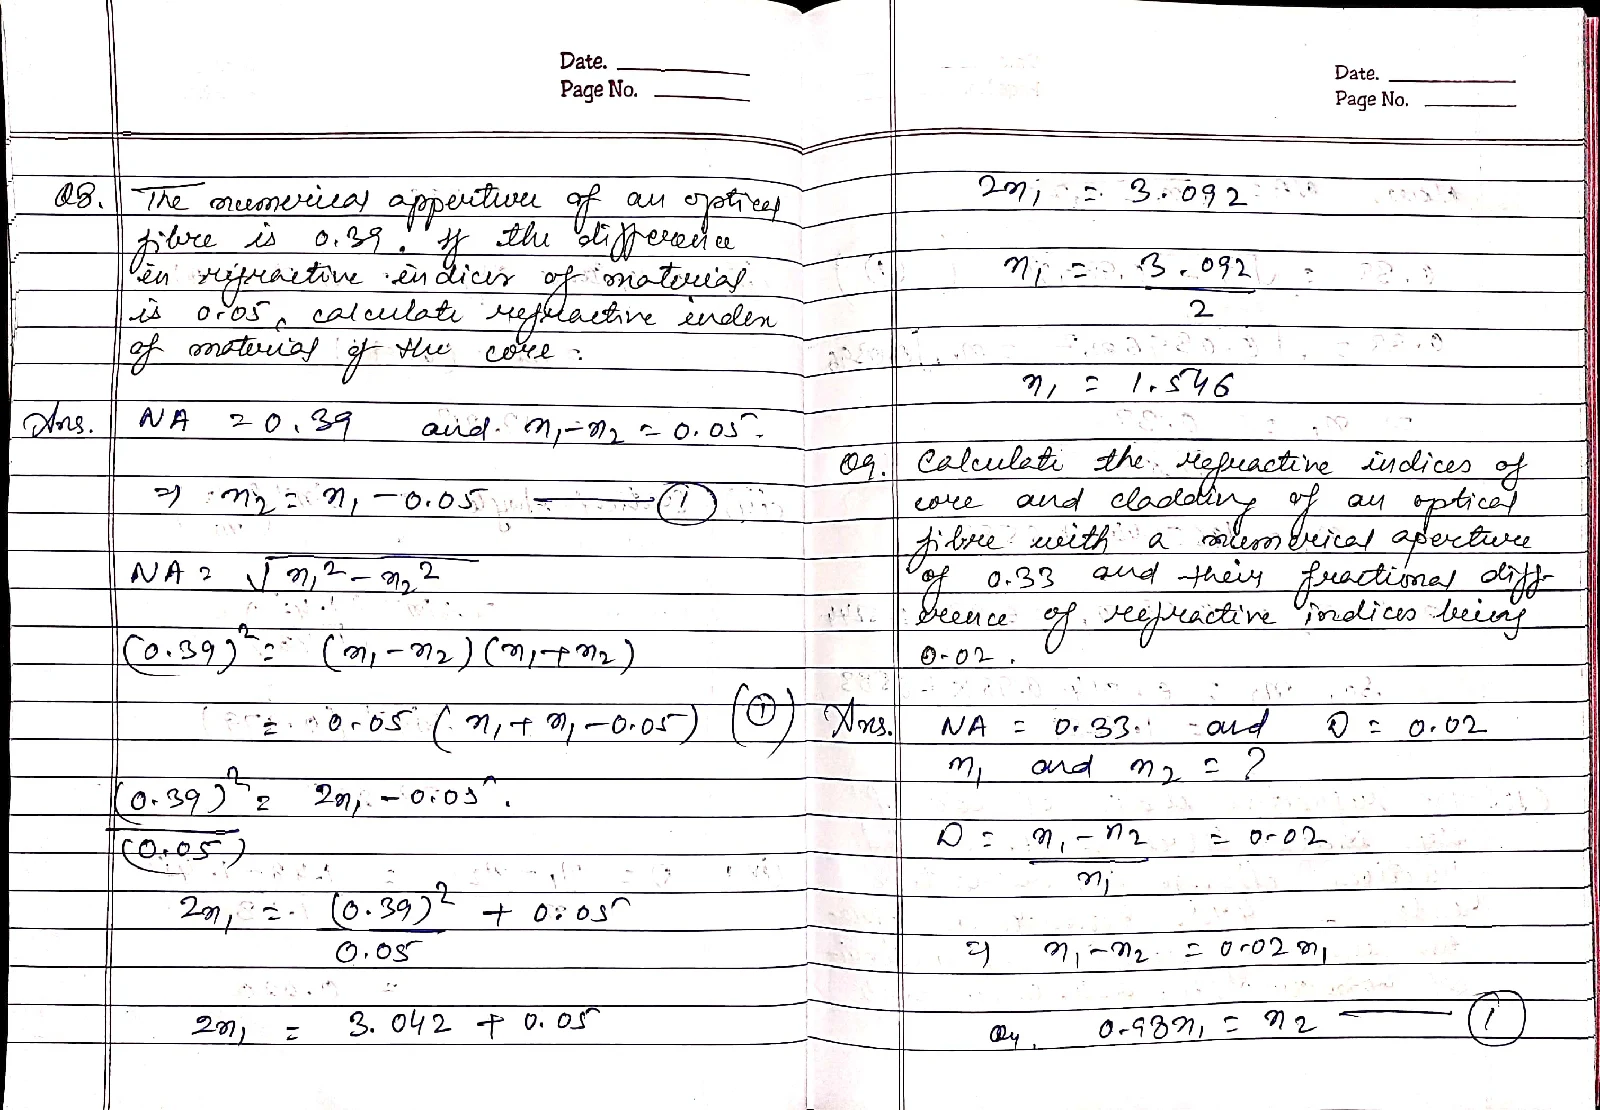 Date.
Page No.
Q8. The numerical apperture of an optical
fibre is 0.39. If the difference
in refractive indices of material
is 0.05, calculate refractive index
of material of the core.
Ans. NA = 0.39 and n₁-n₂ = 0.05.
⇒ n₂ = n₁ - 0.05 ——— ①
NA = √n₁² - n₂²
(0.39)² = (n₁-n₂)(n₁+n₂)
= 0.05 (n₁+n₁-0.05) (①)
(0.39)² = 2n₁ - 0.05.
(0.05)
2n₁ = (0.39)² + 0.05
0.05
2n₁ = 3.042 + 0.05
Date.
Page No.
2n₁ = 3.092
n₁ = 3.092
2
n₁ = 1.546
Q9. Calculate the refractive indices of
core and cladding of an optical
fibre with a numerical aperture
of 0.33 and their fractional diff-
erence of refractive indices being
0.02.
Ans. NA = 0.33 and D = 0.02
n₁ and n₂ = ?
D = n₁-n₂ = 0.02
n₁
⇒ n₁-n₂ = 0.02 n₁
or, 0.98n₁ = n₂ ——— ①